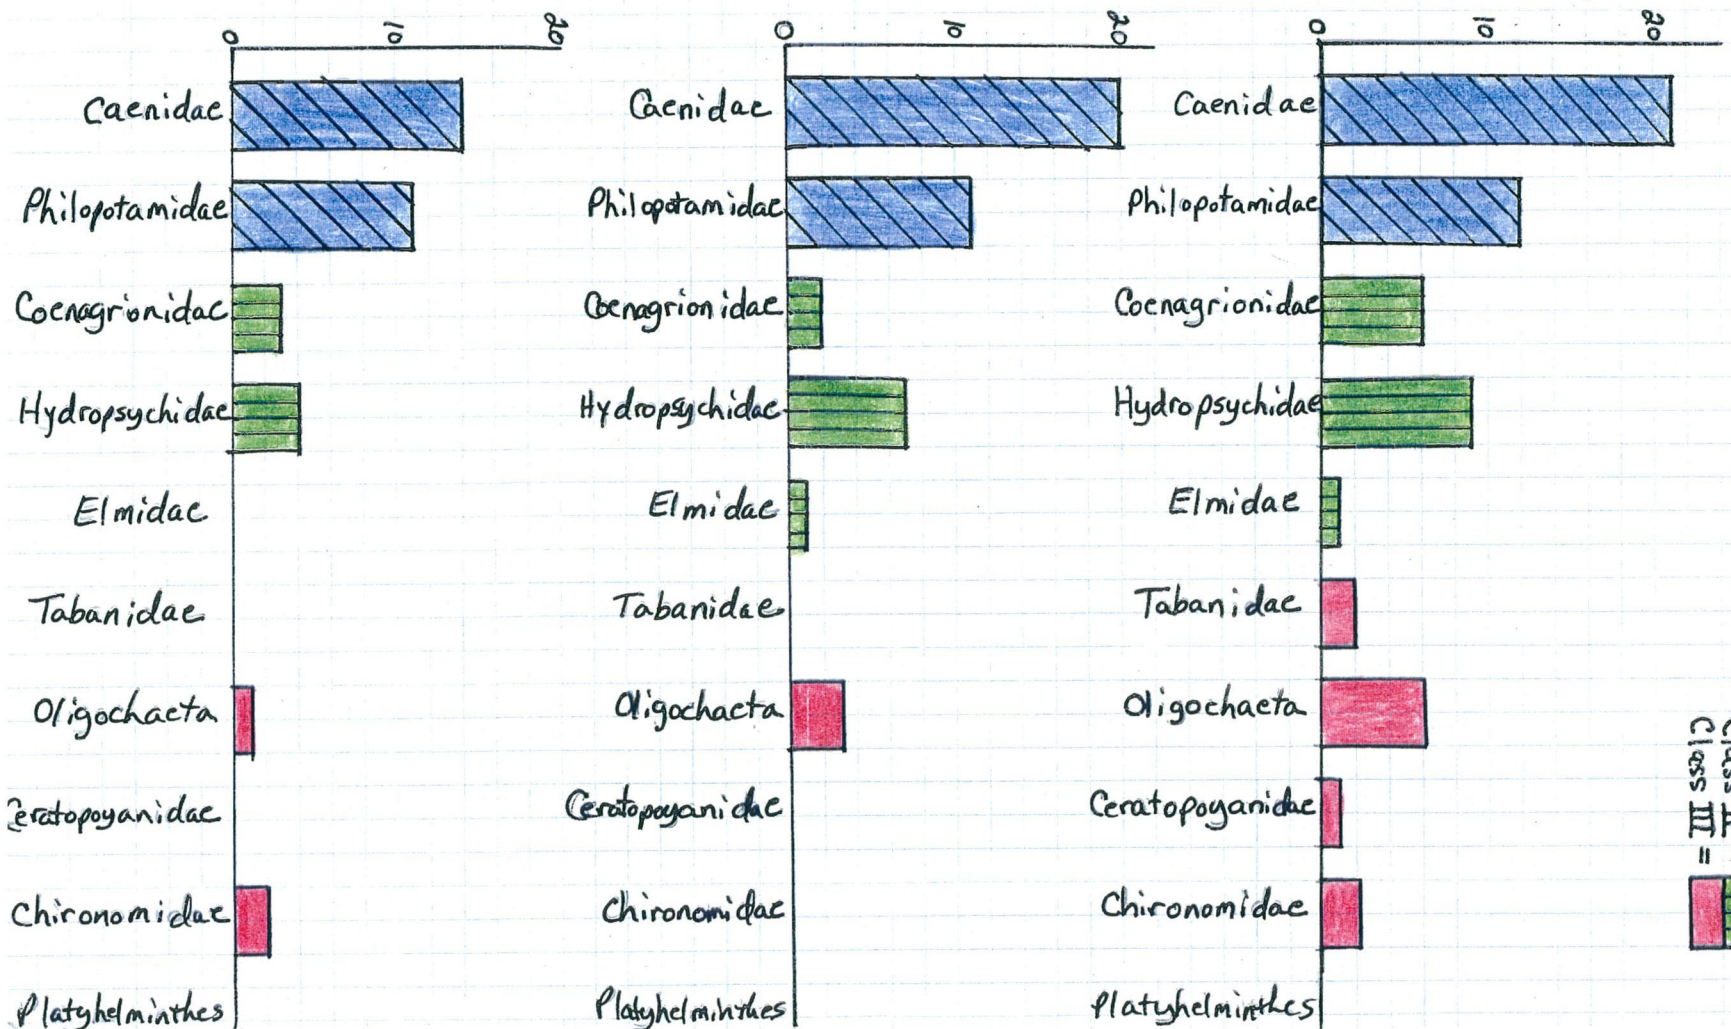 0 10 20
Caenidae
Philopotamidae
Coenagrionidae
Hydropsychidae
Elmidae
Tabanidae
Oligochaeta
Ceratopoyanidae
Chironomidae
Platyhelminthes
0 10 20
Caenidae
Philopotamidae
Coenagrionidae
Hydropsychidae
Elmidae
Tabanidae
Oligochaeta
Ceratopoyanidae
Chironomidae
Platyhelminthes
0 10 20
Caenidae
Philopotamidae
Coenagrionidae
Hydropsychidae
Elmidae
Tabanidae
Oligochaeta
Ceratopoyanidae
Chironomidae
Platyhelminthes
Class III =